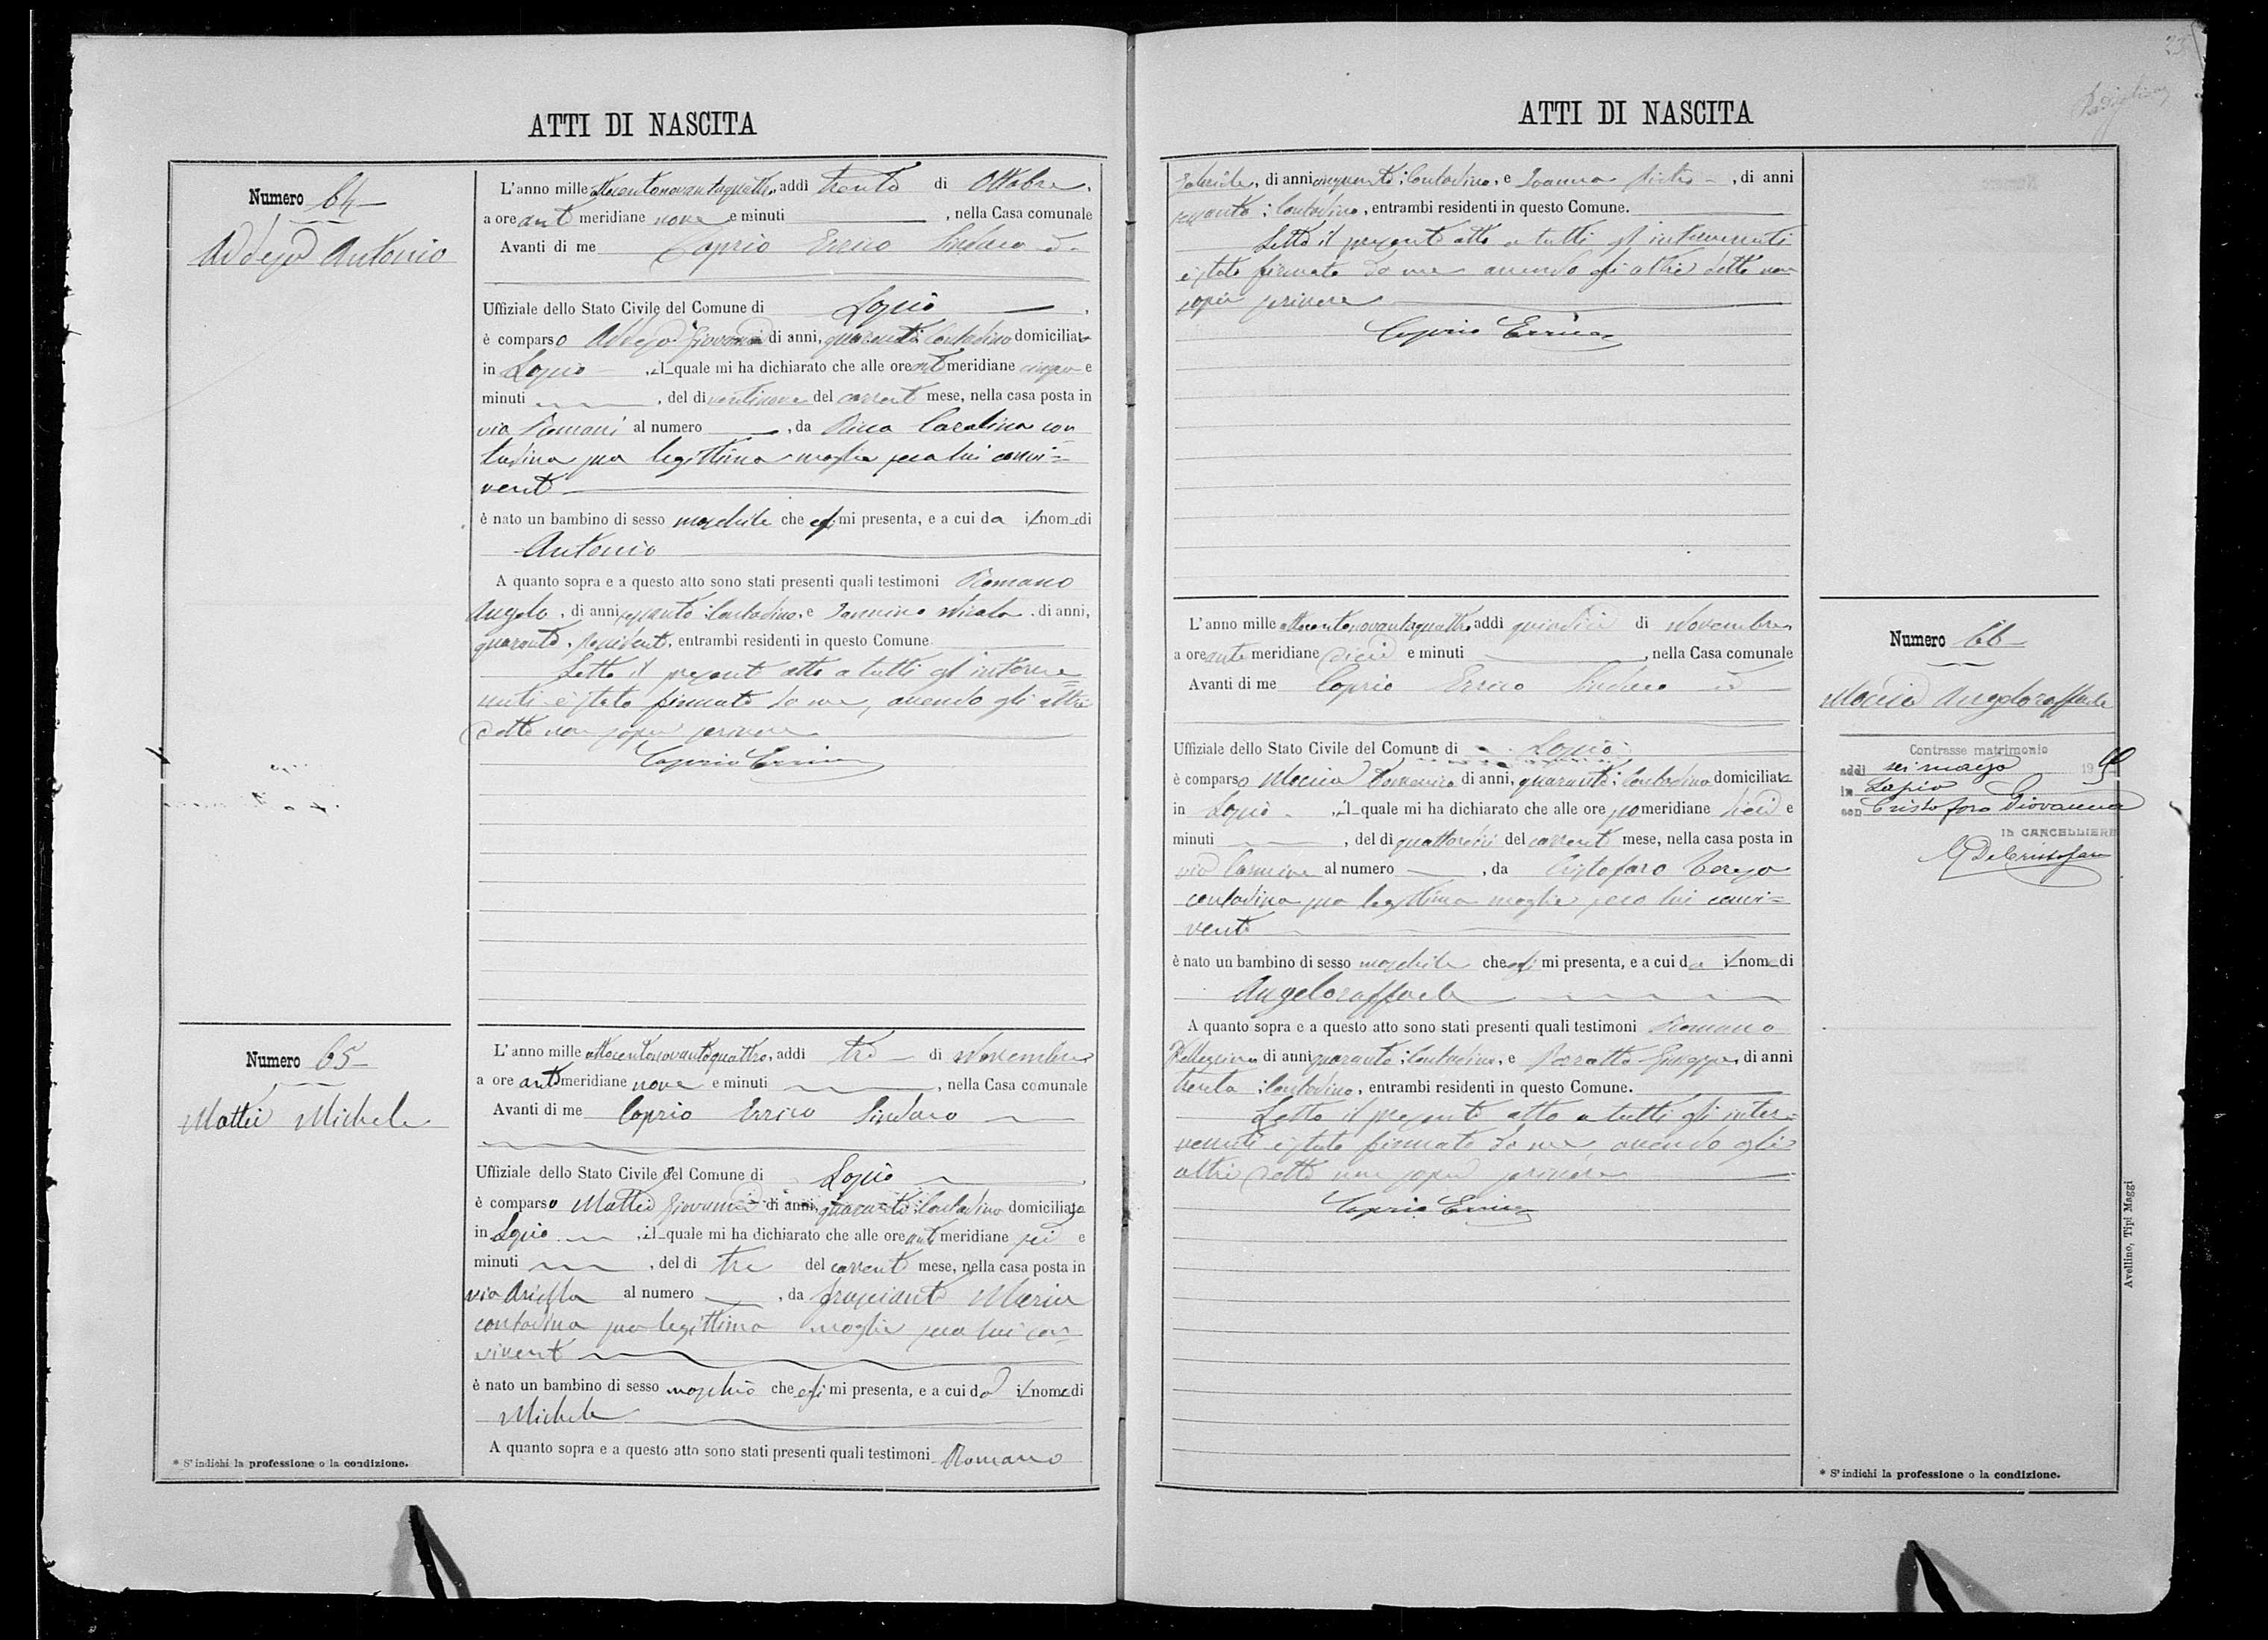 ATTI DI NASCITA
Numero 64
Addego Antonio
L'anno mille ottocentonovantaquattro, addì trenta di Ottobre,
a ore ante meridiane nove e minuti , nella Casa comunale
Avanti di me Caprio Errico Sindaco
Uffiziale dello Stato Civile del Comune di Lapio
è comparso Addego Giovanni di anni, quaranta contadino domiciliato
in Lapio , il quale mi ha dichiarato che alle ore ant meridiane cinque e
minuti , del dì ventinove del corrente mese, nella casa posta in
via Romani al numero , da Ricca Carolina con
tadina sua legittima moglie seco lui convi=
vente
è nato un bambino di sesso maschile che egli mi presenta, e a cui da il nome di
Antonio
A quanto sopra e a questo atto sono stati presenti quali testimoni Romano
Angelo, di anni sessanta contadino, e Nicola, di anni,
quaranta, , entrambi residenti in questo Comune.
Letto il presente atto a tutti gl' interve=
nuti è stato firmato da me, avendo gli altri
detto non saper scrivere
Caprio Errico
Numero 65
Mattei Michele
L'anno mille ottocentonovantaquattro, addì tre di Novembre
a ore ante meridiane nove e minuti , nella Casa comunale
Avanti di me Caprio Errico Sindaco
Uffiziale dello Stato Civile del Comune di Lapio
è comparso Mattei Giovanni di anni, quaranta contadino domiciliato
in Lapio , il quale mi ha dichiarato che alle ore ante meridiane sei e
minuti , del dì tre del corrente mese, nella casa posta in
via al numero , da Maria
contadina sua legittima moglie seco lui con=
vivente
è nato un bambino di sesso maschio che egli mi presenta, e a cui dà il nome di
Michele
A quanto sopra e a questo atto sono stati presenti quali testimoni Romano
* S'indichi la professione o la condizione.
ATTI DI NASCITA
Gabriele, di anni cinquanta contadino, e , di anni
sessanta contadino, entrambi residenti in questo Comune.
Letto il presente atto a tutti gl' intervenuti
è stato firmato da me avendo gli altri detto non
saper scrivere
Caprio Errico
L'anno mille ottocentonovantaquattro, addì quindici di Novembre
a ore ante meridiane dieci e minuti , nella Casa comunale
Avanti di me Caprio Errico Sindaco
Uffiziale dello Stato Civile del Comune di Lapio
è comparso Domenico di anni, quaranta contadino domiciliato
in Lapio , il quale mi ha dichiarato che alle ore pomeridiane dieci e
minuti , del dì quattordici del corrente mese, nella casa posta in
via Carmine al numero , da Cristofaro Teresa
contadina sua legittima moglie seco lui convi=
vente
è nato un bambino di sesso maschile che egli mi presenta, e a cui da il nome di
Angeloraffaele
A quanto sopra e a questo atto sono stati presenti quali testimoni Romano
Pellegrino di anni quaranta contadino, e Giuseppe, di anni
trenta contadino, entrambi residenti in questo Comune.
Letto il presente atto a tutti gli inter=
venuti è stato firmato da me, avendo gli
altri detto non saper scrivere
Caprio Errico
Numero 66
Angeloraffaele
Contrasse matrimonio
addì sei marzo 19
in Lapio
con Cristofaro Giovanna
IL CANCELLIERE
* S'indichi la professione o la condizione.
Avellino, Tipi Maggi